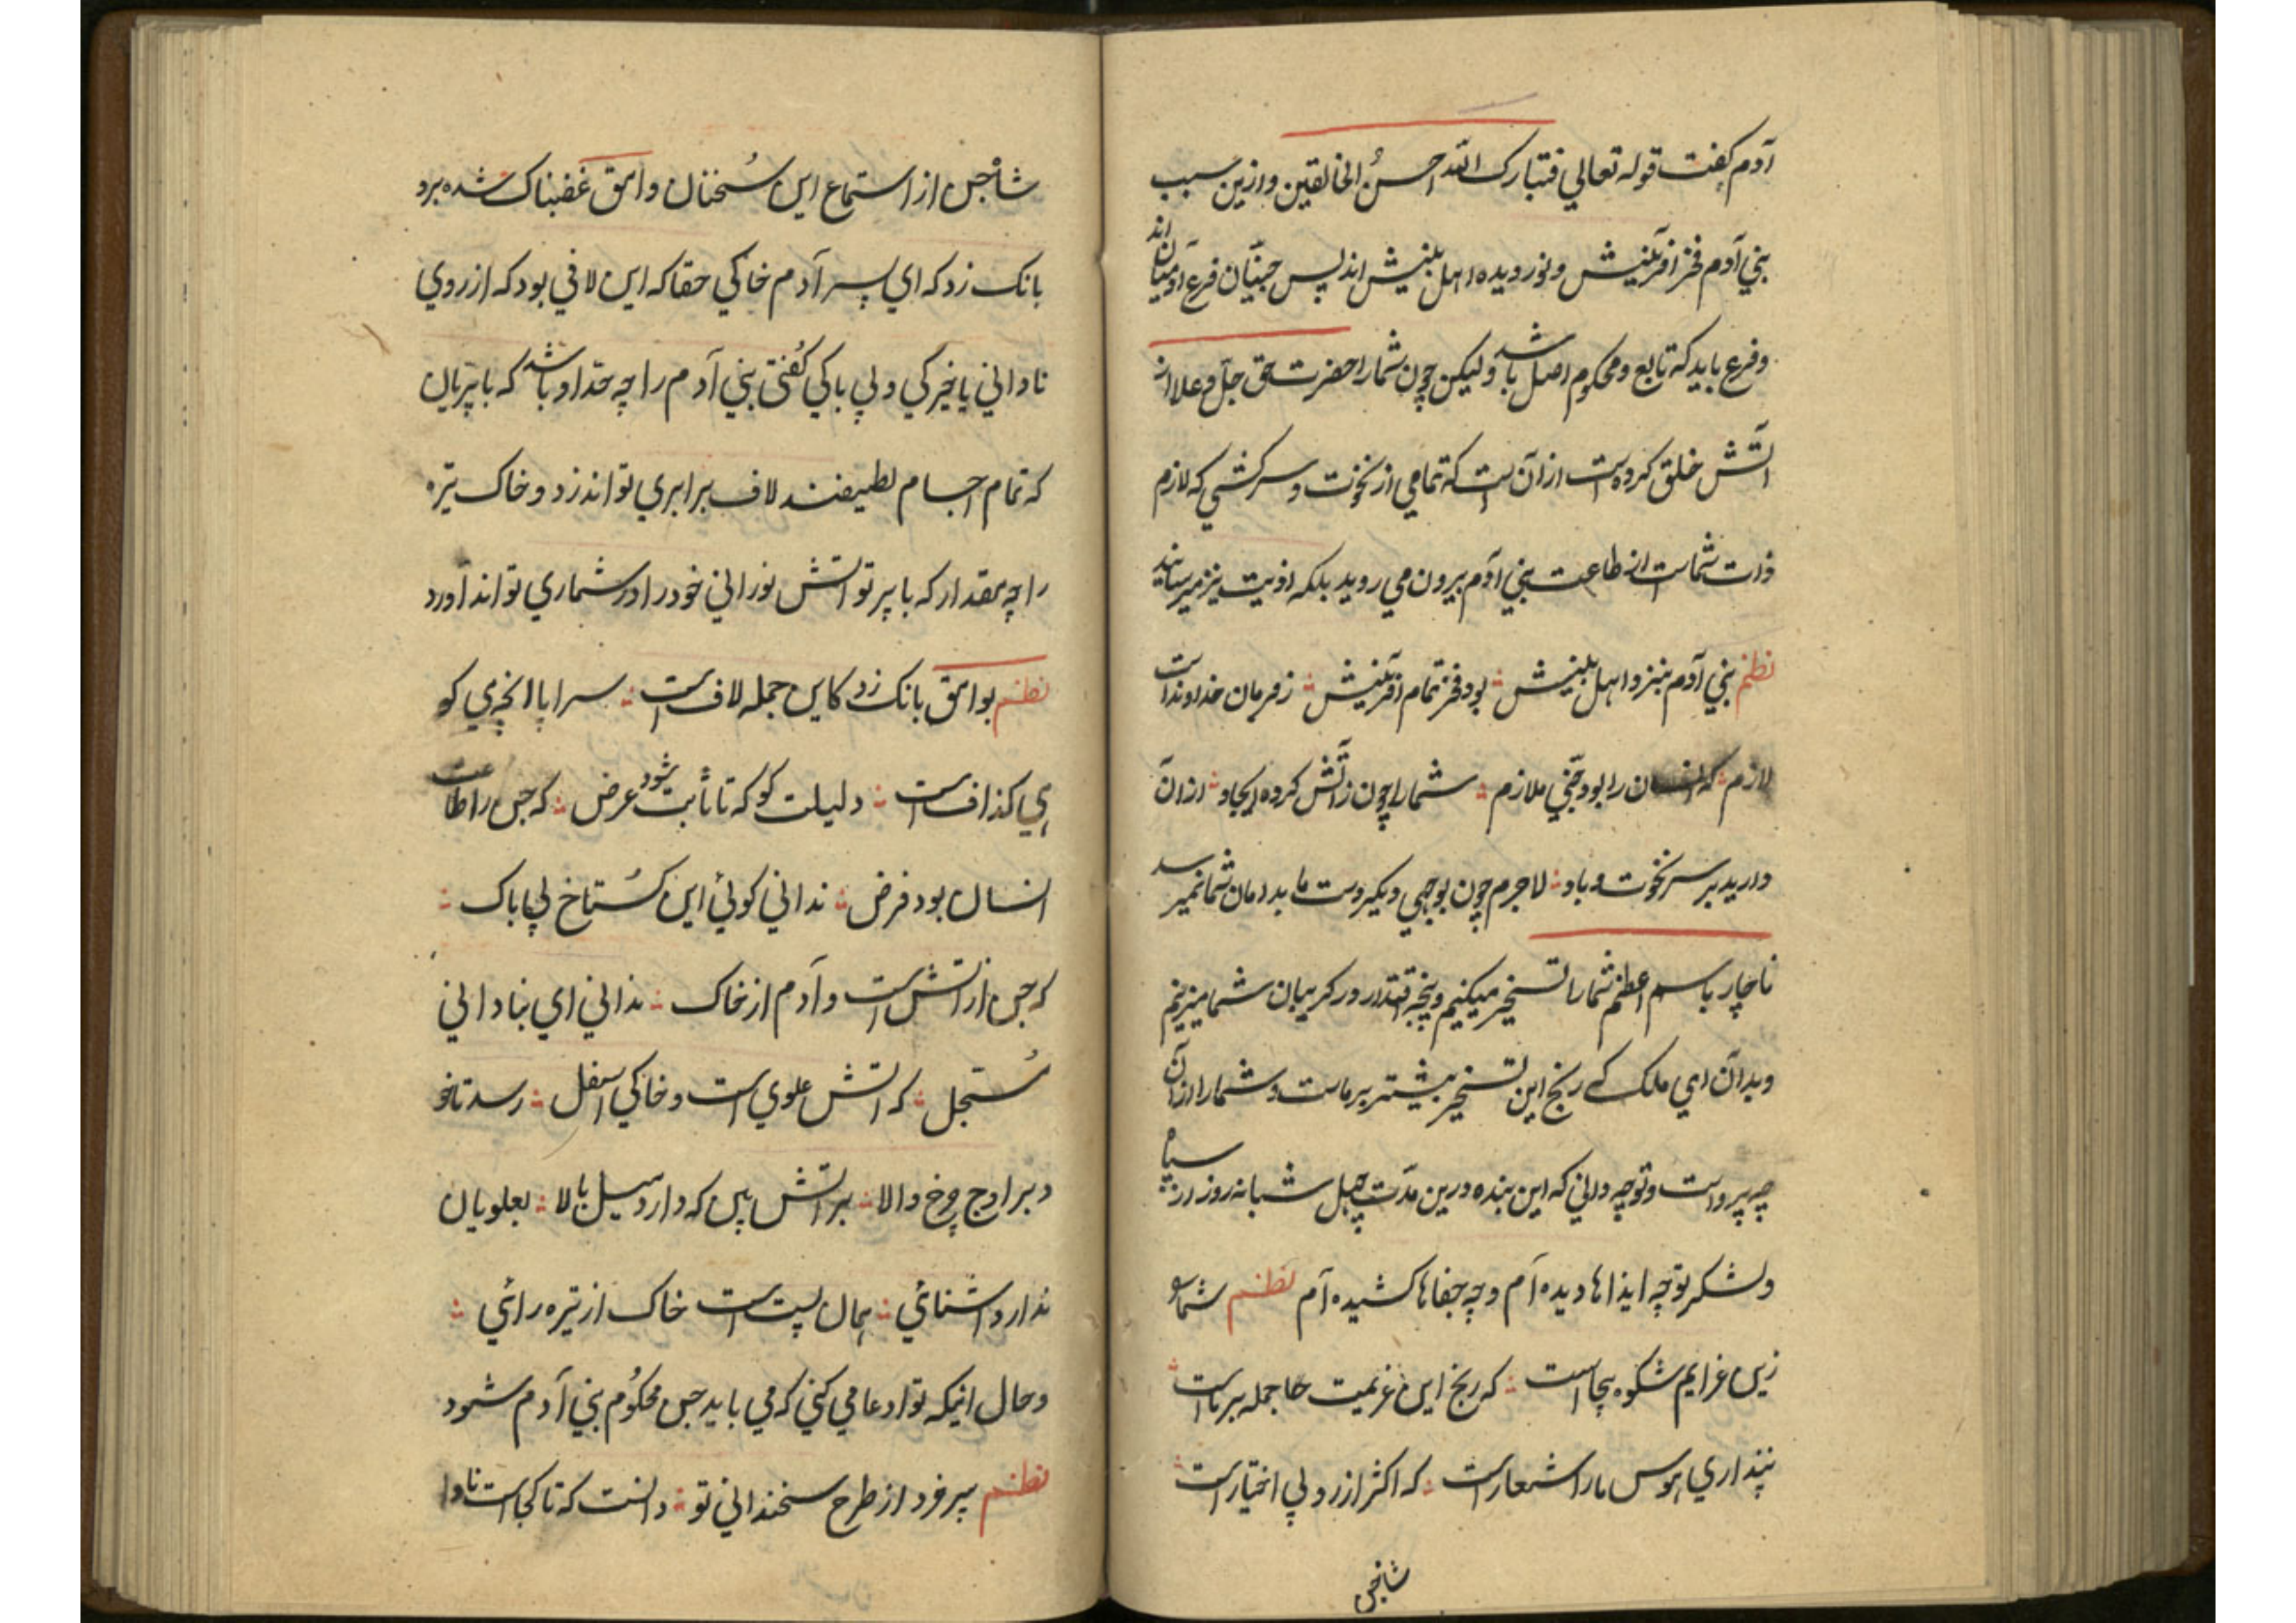 آدم گفت قوله تعالي فتبارک الله احسنُ الخالقین و ازین سبب
بني آدم فخر آفرینش و نور دیده اهل بینش اند پس جنیّان فرع آدمیان اند
و فرع باید که تابع و محکوم اصل باشد ولیکن چون شما را حضرت حق جلّ و علا از
آتش خلق کرده است ازانست که تمامي از نخوت و سرکشي که لازم
ذات شماست از طاعت بني آدم بیرون مي روید بلکه اذیت نیز میرسانید
نظم بني آدم بنزد اهل بینش ؛ بود فخر تمام آفرینش ؛ ز فرمان خداوند است
لازم ؛ که انسان را بود جنّي ملازم ؛ شما را چون ز آتش کرده ایجاد ؛ ازان
دارید بر سر نخوت و باد ؛ لاجرم چون بوجهي دیگر دست ما بدامان شما نمیرسد
ناچار باسم اعظم شما را تسخیر میکنیم و پنجه اقتدار در کریبان شما میزنیم
و بدان اي ملک که رنج این تسخیر بیشتر بر ماست و شما را ازان
چه پرواست و تو چه داني که این بنده درین مدّت چهل شبانه روز از سپاه
و لشکر تو چه ایذاها دیده ام و چه جفاها کشیده ام نظم شما را
زین عزایم شکوه بیجا است ؛ که رنج این عزیمت ها جمله بر ماست ؛
نپنداري هوس ما را شعار است ؛ که اکثر از رد بي اختیار است ؛
شاه جن
شاه جن از استماع این سخنان وامق غضبناک شده برو
بانک زد که اي پسر آدم خاکي حقا که این لافي بود که از روي
ناداني یا خیرکي و بي باکي کُفتي بني آدم را چه حدّ او باشد که با پریان
که تمام اجسام لطیفند لاف برابري تواند زد و خاک تیره
را چه مقدار که با پرتو آتش نوراني خود را در شماري تواند آورد
نظم بوامق بانک زد کاین جمله لافست ؛ سراپا انچه مي کو
یي کذافست ؛ دلیلت کو که تا ثابت شود عرض ؛ که جن را طاعت
انسان بود فرض ؛ نداني کوئي این کُستاخ بي باک ؛
که جن از آتش است و آدم از خاک ؛ نداني اي بناداني
مُستجل ؛ که آتش علوي است و خاکي اسفل ؛ رسد تا خو
د بر اوج چرخ والا ؛ بر آتش بین که دارد میل بالا ؛ بعلویان
ندارد آشنائي ؛ همان پست است خاک از تیره رائي ؛
و حال اینکه تو ادعا مي کني که مي باید جن محکوُم بني آدم شود
نظم پیر خرد از طرح سخنداني تو ؛ دانست که تا کجاست نادا